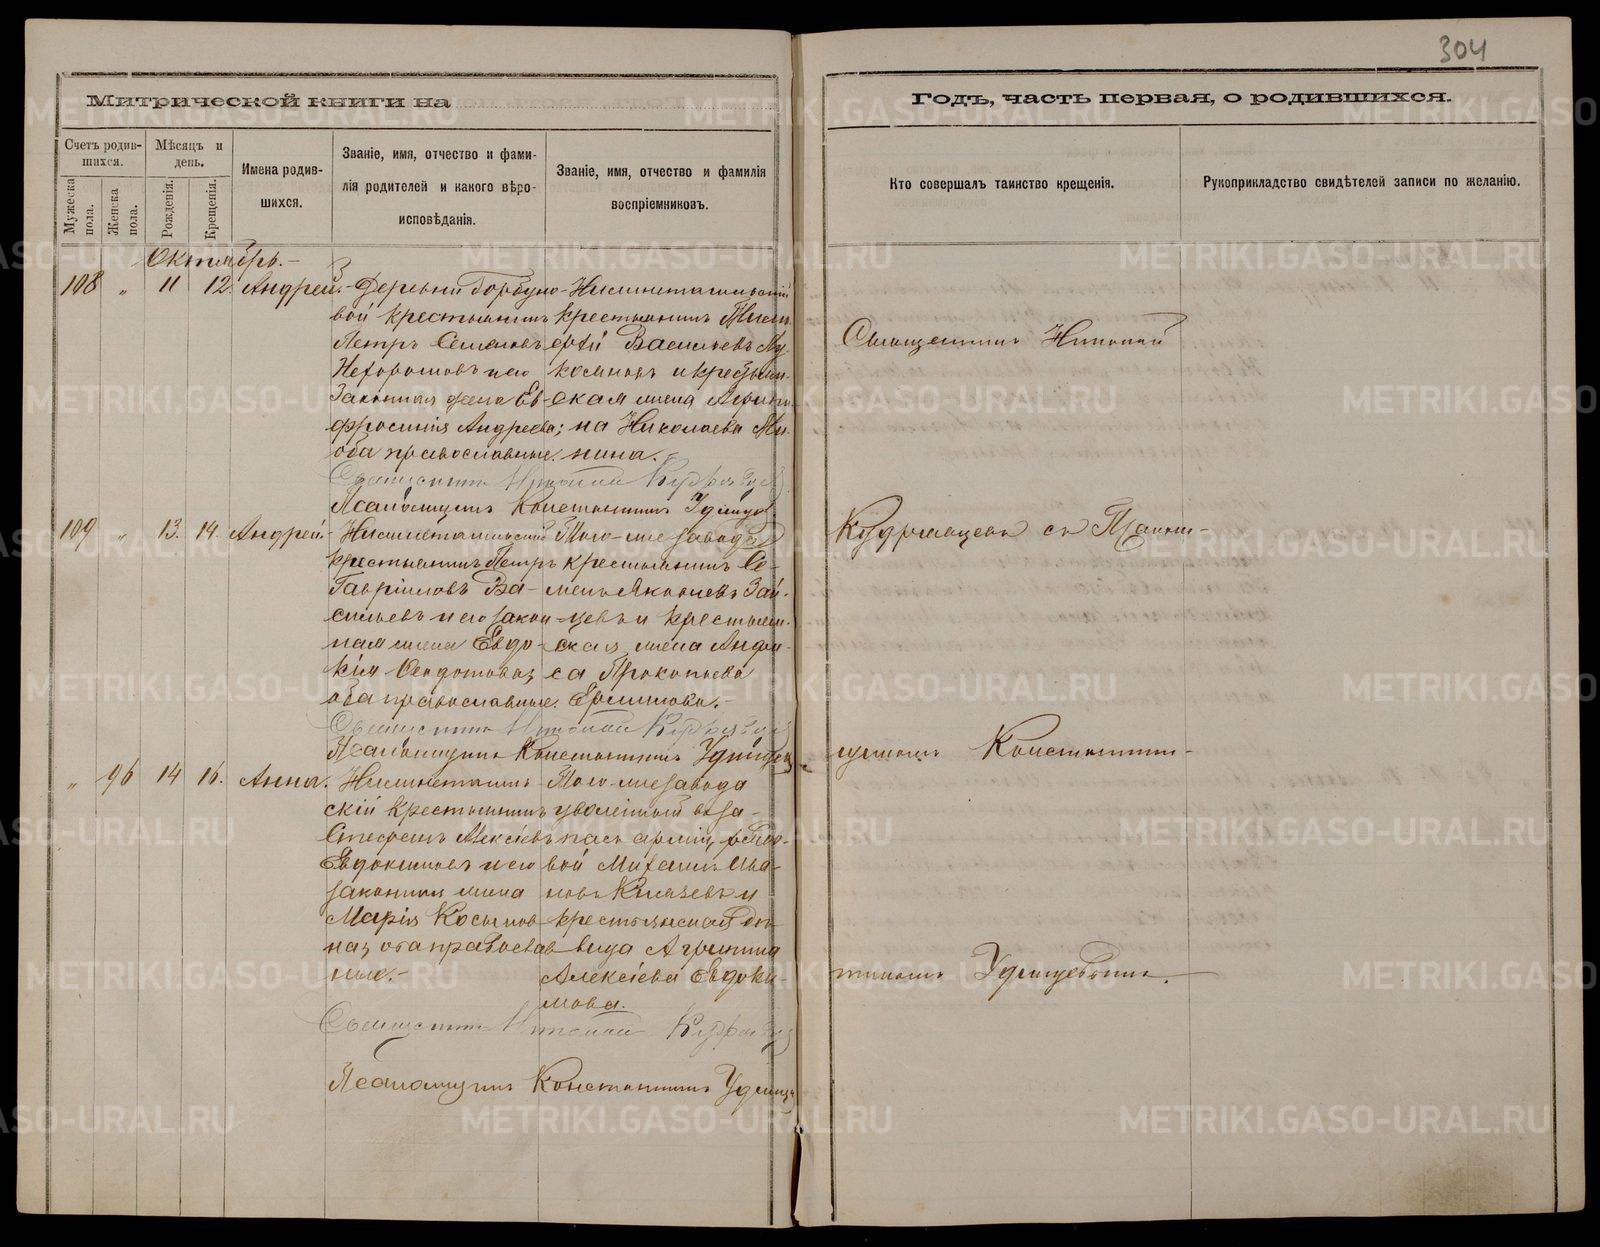 304
Митрической книги на
Годъ, часть первая, о родившихся.
Счетъ родив-
шихся.
Мужеска
пола.
Женска
пола.
Мѣсяцъ и
день.
Рожденія.
Крещенія.
Имена родив-
шихся.
Званіе, имя, отчество и фами-
лія родителей и какого вѣро-
исповѣданія.
Званіе, имя, отчество и фамилія
воспріемниковъ.
Кто совершалъ таинство крещенія.
Рукоприкладство свидѣтелей записи по желанію.
Октябрь.-
108 " 11 12. Андрей.
Деревни Горбуно-
вой крестьянинъ
Петръ Семеновъ
Нехорошовъ и его
Законная жена Ев-
фросинія Андреева;
оба православные.
Нижнетагильскій
крестьянинъ Тимо-
фей Васильевъ
и крестьян-
ская жена
Николаева
нина.
Священникъ Николай Кудрявцевъ
Псаломщикъ Константинъ Удинцевъ
109 " 13. 14. Андрей
Нижнетагильскій
крестьянинъ Петръ
Гавриловъ Ва-
сильевъ и его закон-
ная жена Евдо-
кія Ѳедотова;
оба православные.
Того-же завода
крестьянинъ Се-
менъ Яковлевъ Зай-
цевъ и крестьян-
ская жена Анфи-
са Прокопьева
Ермилова.-
Священникъ Николай Кудрявцевъ
Псаломщикъ Константинъ Удинцевъ
" 96 14 16. Анна.
Нижнетагиль-
скій крестьянинъ
Стефанъ Алексѣевъ
Евдокимовъ и его
законная жена
Марія Косьмов-
на; оба православ-
ные.-
Того-же завода
уволенный въ за-
пасъ арміи, рядо-
вой Михаилъ Ива-
новъ Князевъ и
крестьянская дѣ-
вица Агрипина
Алексѣева Евдоки-
мова.
Священникъ Николай Кудрявцевъ
Псаломщикъ Константинъ Удинцевъ
Священникъ Николай
Кудрявцевъ съ Псалом-
щикомъ Константи-
номъ Удинцевымъ.
METRIKI.GASO-URAL.RU